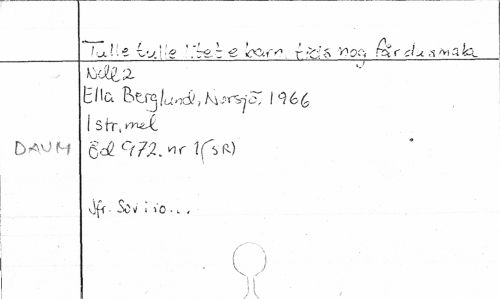 Tulle tulle litet e barn, fisis nog får du smaka
Ndl 2
Ella Berglund, Norsjö, 1966
1 str, mel
DAUM Öd 972. nr 1 (SR)
Jfr. Sov i ro...